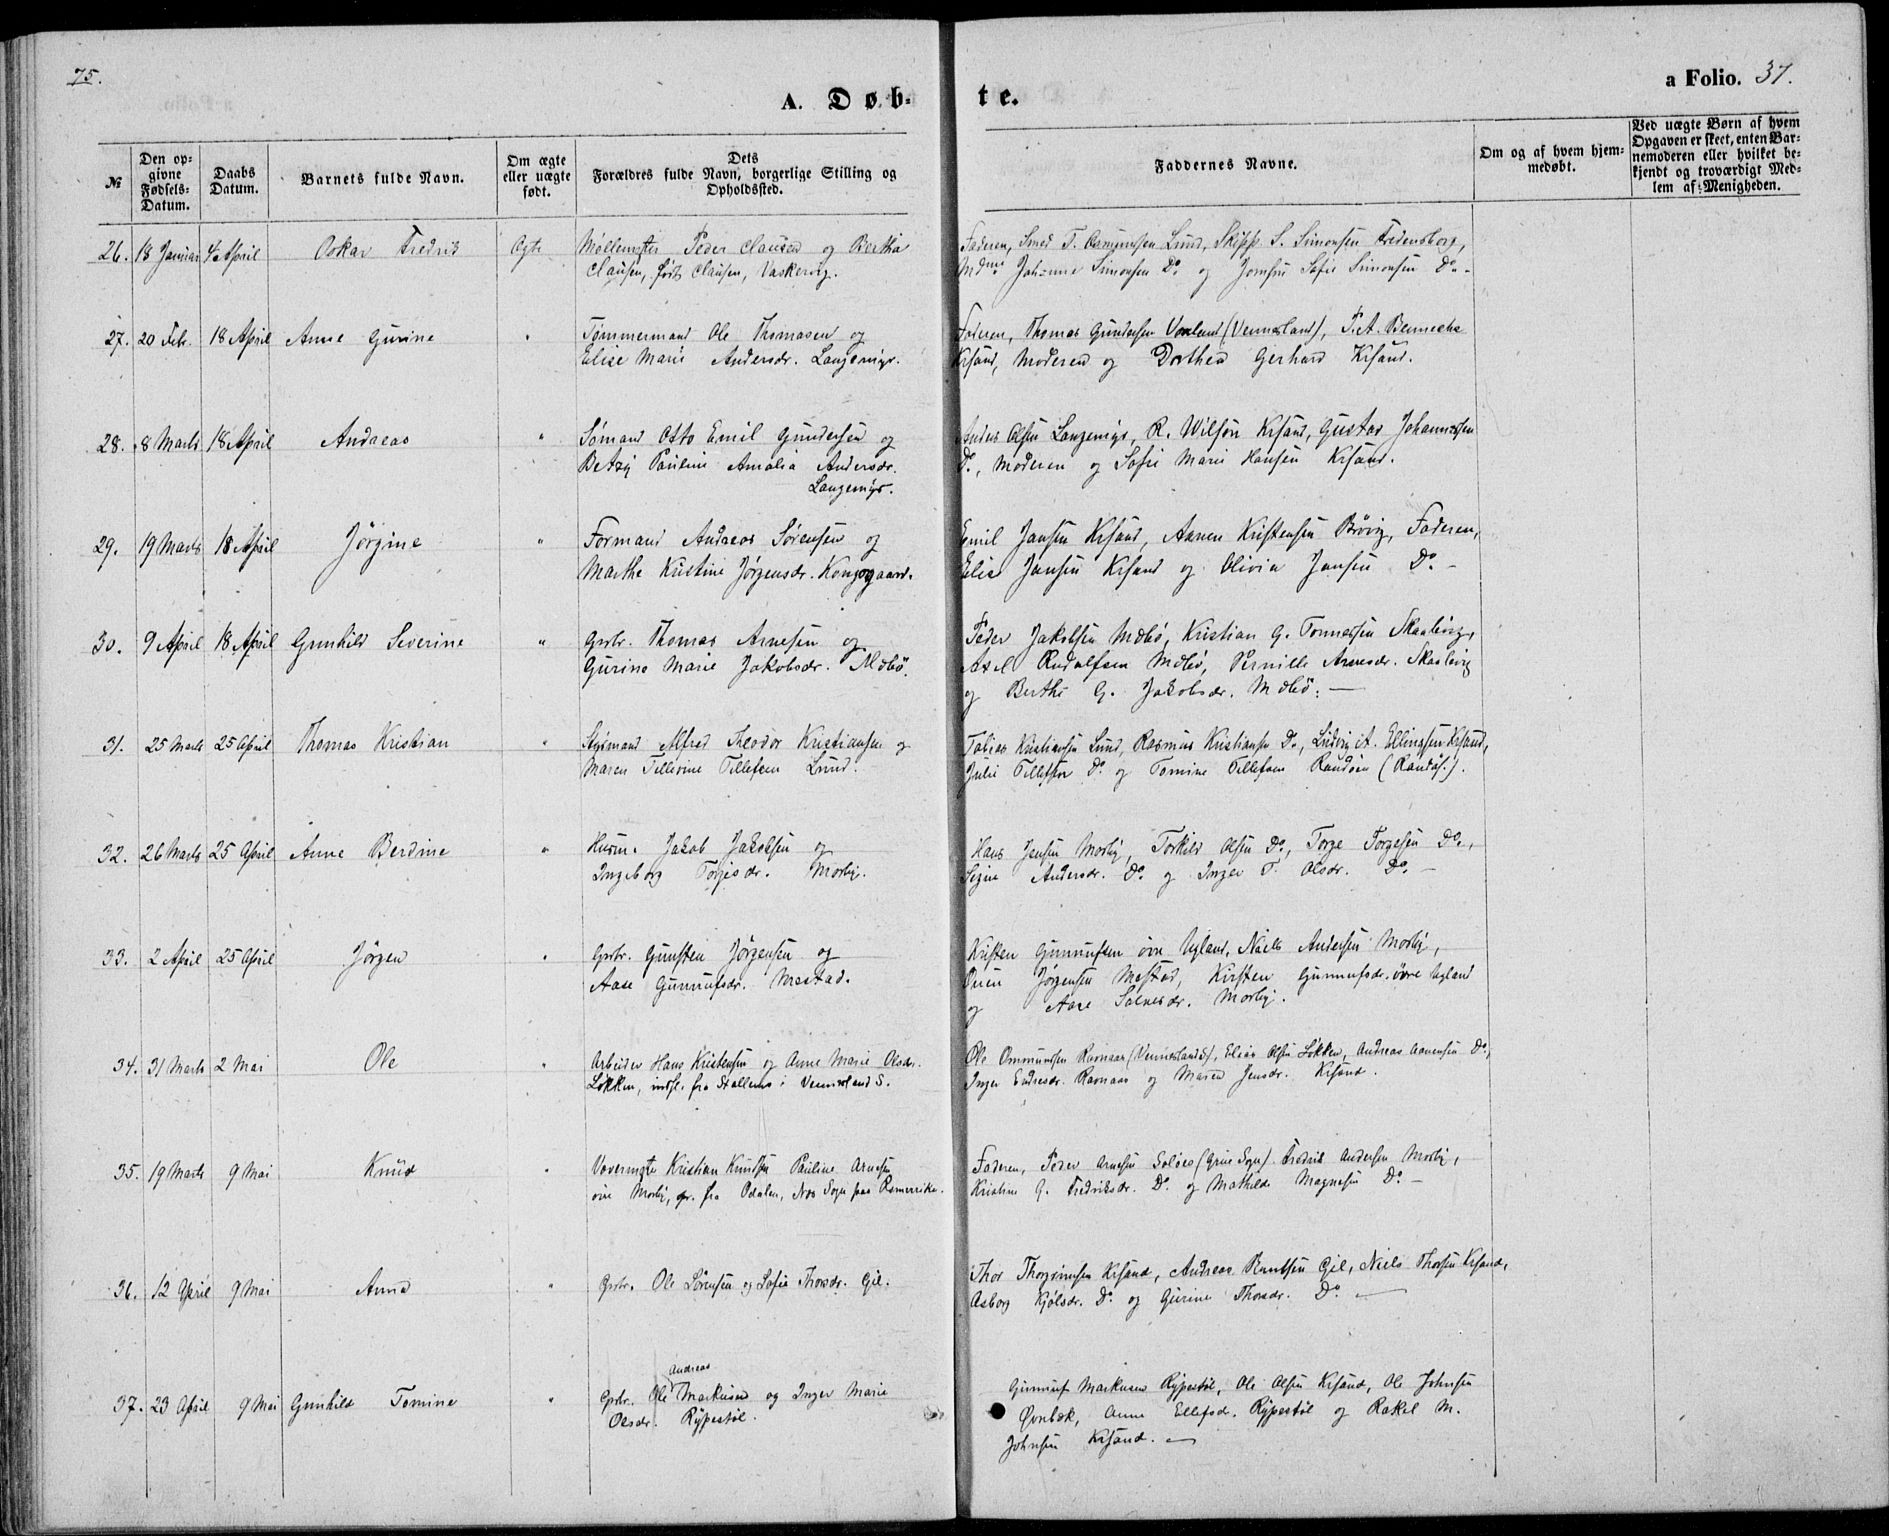 75.
a Folio. 37.
A. Døb-
te.
№
Den op-
givne
Fødsels-
Datum.
Daabs
Datum.
Barnets fulde Navn.
Om ægte
eller uægte
født.
Dets
Forældres fulde Navn, borgerlige Stilling og
Opholdssted.
Faddernes Navne.
Om og af hvem hjem-
medøbt.
Ved uægte Børn af hvem
Opgaven er skeet, enten Bar-
nemoderen eller hvilket be-
kjendt og troværdigt Med-
lem af Menigheden.
26. 18 Januar 4 April Oskar Fredrik Ægte Møllemster Peder Clausen og Bertha
Clausen, født Clausen, Vaskevig.
Faderen, Smed T. Osmundsen Lund, Skipp. S. Simonsen Fredensborg,
Mdme Johanne Simonsen Do. og Jomfru Sofie Simonsen Do. -
27. 20 Febr. 18 April Anne Gurine " Tømmermand Ole Thomasen og
Elise Marie Andersdr. Langemyr.
Faderen, Thomas Gundersen Vonland (Vennesland), P. A. Bennecke
Krsand, Moderen og Dorthea Gerhard Krsand.
28. 8 Marts 18 April Andreas " Sømand Otto Emil Gundersen og
Betzy Pauline Amalia Andersdr.
Langemyr.
Anders Olsen Langemyr, R. Wilson Krsand, Gustav Johannessen
Do., Moderen og Sofie Marie Hansen Krsand.
29. 19 Marts 18 April Jørgine " Formand Andreas Sørensen og
Marthe Kristine Jørgensdr. Kongsgaard.
Emil Jansen Krsand, Aanen Kristensen Brøvig, Faderen,
Elise Jansen Krsand og Olivia Jansen Do. -
30. 9 April 18 April Gunhild Severine " Grbr. Thomas Arnesen og
Gurine Marie Jakobsdr. Mæbø.
Peder Jakobsen Mæbø, Kristian G. Tønnessen Skaalevig,
Axel Rudolfsen Mæbø, Pernille Arnesdr. Skaalevig
og Berthe G. Jakobsdr. Mæbø. —
31. 25 Marts 25 April Thomas Kristian " Styrmand Alfred Theodor Kristiansen og
Maren Tellevine Tellefsen Lund.
Tobias Kristiansen Lund, Rasmus Kristiansen Do., Ludvig A. Ellingsen Krsand,
Julie Tellefsen Do. og Tomine Tellefsen Randøen (Randøs.).
32. 26 Marts 25 April Anne Berdine " Husm. Jakob Jakobsen og
Ingeborg Torjesdr. Mosby.
Hans Jensen Mosby, Torkild Olsen Do., Torge Torgesen Do.,
Signe Andersdr. Do. og Inger T. Olsdr. Do. -
33. 2 April 25 April Jørgen " Grbr. Gunsten Jørgensen og
Aase Gunnufsdr. Mestad.
Kristen Gunnufsen øvre Ugland, Niels Andersen Mosby,
Ouen Jørgensen Mestad, Kirsten Gunnufsdr. øvre Ugland
og Aase Salvesdr. Mosby.
34. 31 Marts 2 Mai Ole " Arbeider Hans Kristensen og Anne Marie Olsdr.
Løkken, indfl. fra Stallemo i Vennesland S.
Ole Ommundsen Ravnaas (Vennesland S), Elias Olsen Løkken, Andreas Aanensen Do,
Inger Endresdr. Ravnaas og Maren Jensdr. Krsand.
35. 19 Marts 9 Mai Knud " Vævermstr Kristian Knudsen Pauline Arnesen
øvre Mosby, gr. fra Odalen, Næs Sogn paa Romerrike.
Faderen, Peder Arnesen Soløes (Grue Sogn), Fredrik Andersen Mosby,
Kristine G. Fredriksdr. Do. og Mathilde Magnesen Do. -
36. 12 April 9 Mai Anna " Grbr. Ole Sørensen og Sofie Thorsdr. Gil.
Thor Thorgrimsen Krsand, Andreas Knutsen Gil, Niels Thorsen Krsand,
Asborg Kjølsdr. Do. og Gurine Thorsdr. Do. —
37. 23 April 9 Mai Gunhild Tomine " Grbr. Ole Andreas Markusen og Inger Marie
Olsdr. Rypestøl.
Gunnuf Markusen Rypestøl, Ole Olsen Krsand, Ole Johnsen
Øvnbæk, Anne Ellefsdr. Rypestøl og Rakel M.
Johnsen Krsand. —